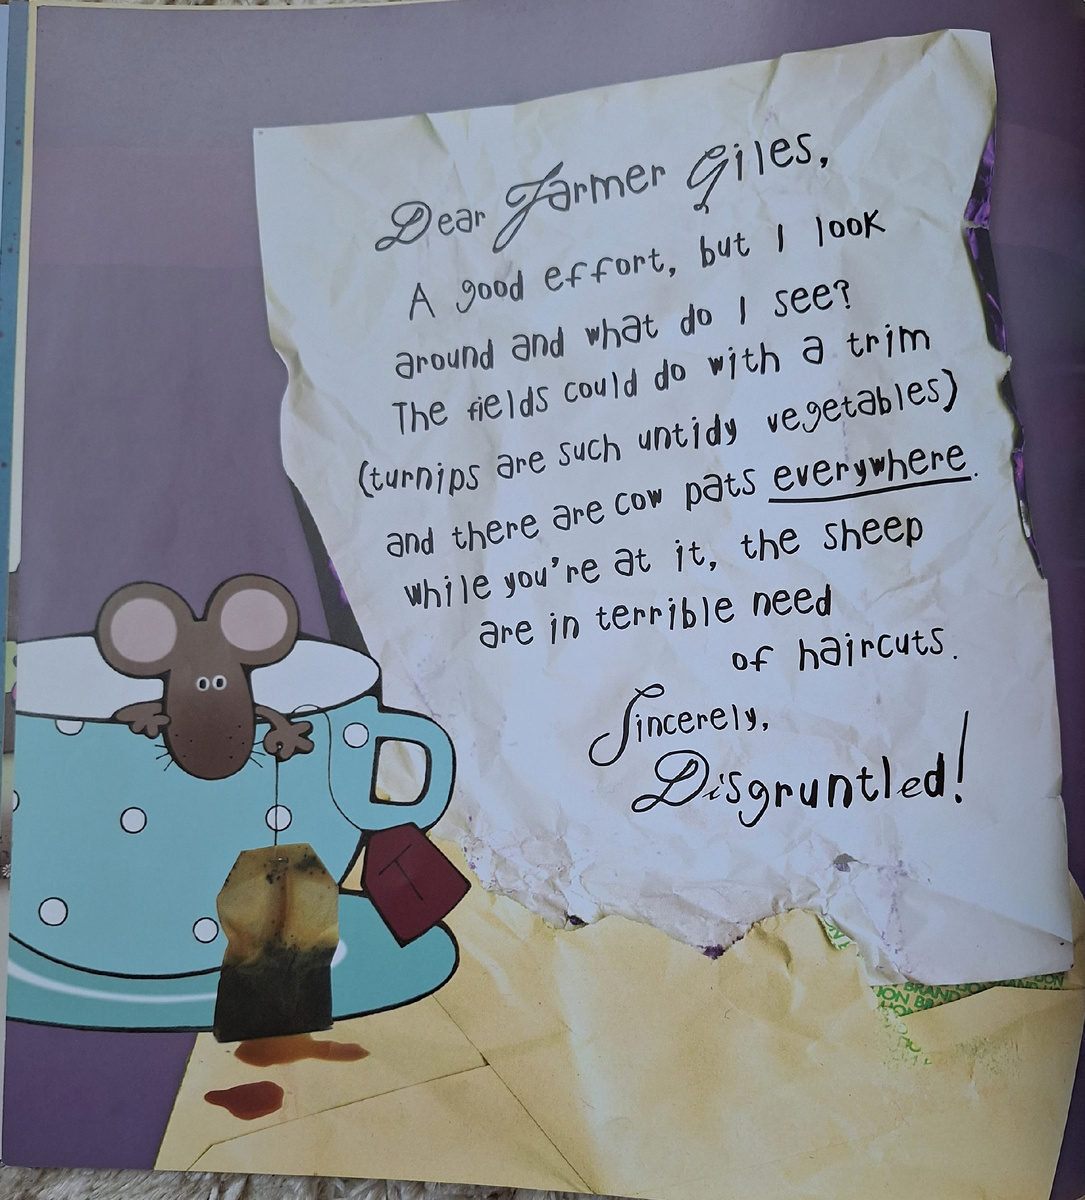 Dear Farmer Giles,
A good effort, but I look
around and what do I see?
The fields could do with a trim
(turnips are such untidy vegetables)
and there are cow pats everywhere.
While you're at it, the sheep
are in terrible need
of haircuts.
Sincerely,
Disgruntled!
T